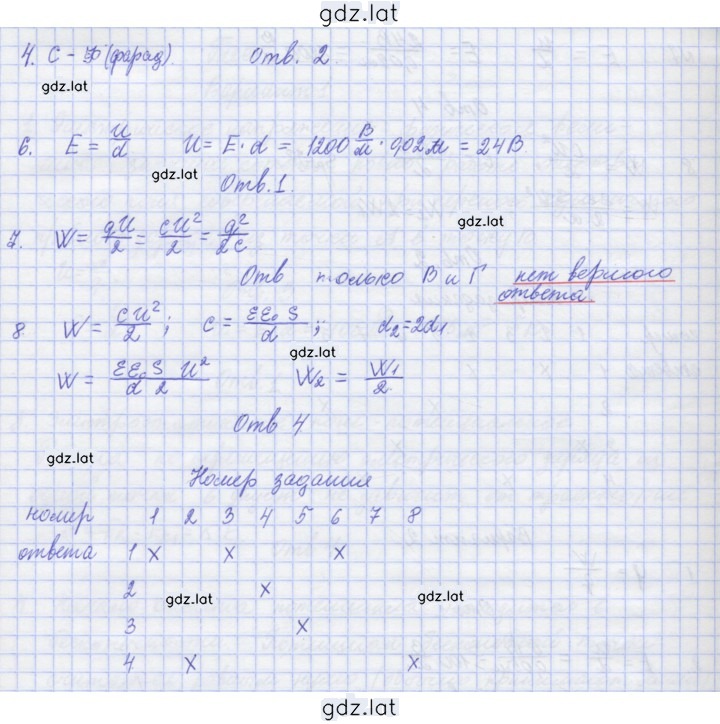 gdz.lat
4. C - Ф (фарад). Отв. 2.
gdz.lat
6. E = U/d U = E · d = 1200 В/м · 0,02 м = 24 В
gdz.lat
Отв. 1.
gdz.lat
7. W = qU/2 = CU²/2 = q²/2C
Отв только В и Г нет верного
ответа.
8 W = CU²/2; C = εε₀S/d; d₂=2d₁
gdz.lat
W = εε₀S U²/d 2 W₂ = W₁/2
Отв 4
gdz.lat
Номер задания
номер 1 2 3 4 5 6 7 8
ответа 1 x x x
2 x
gdz.lat gdz.lat
3 x
4 x x
gdz.lat